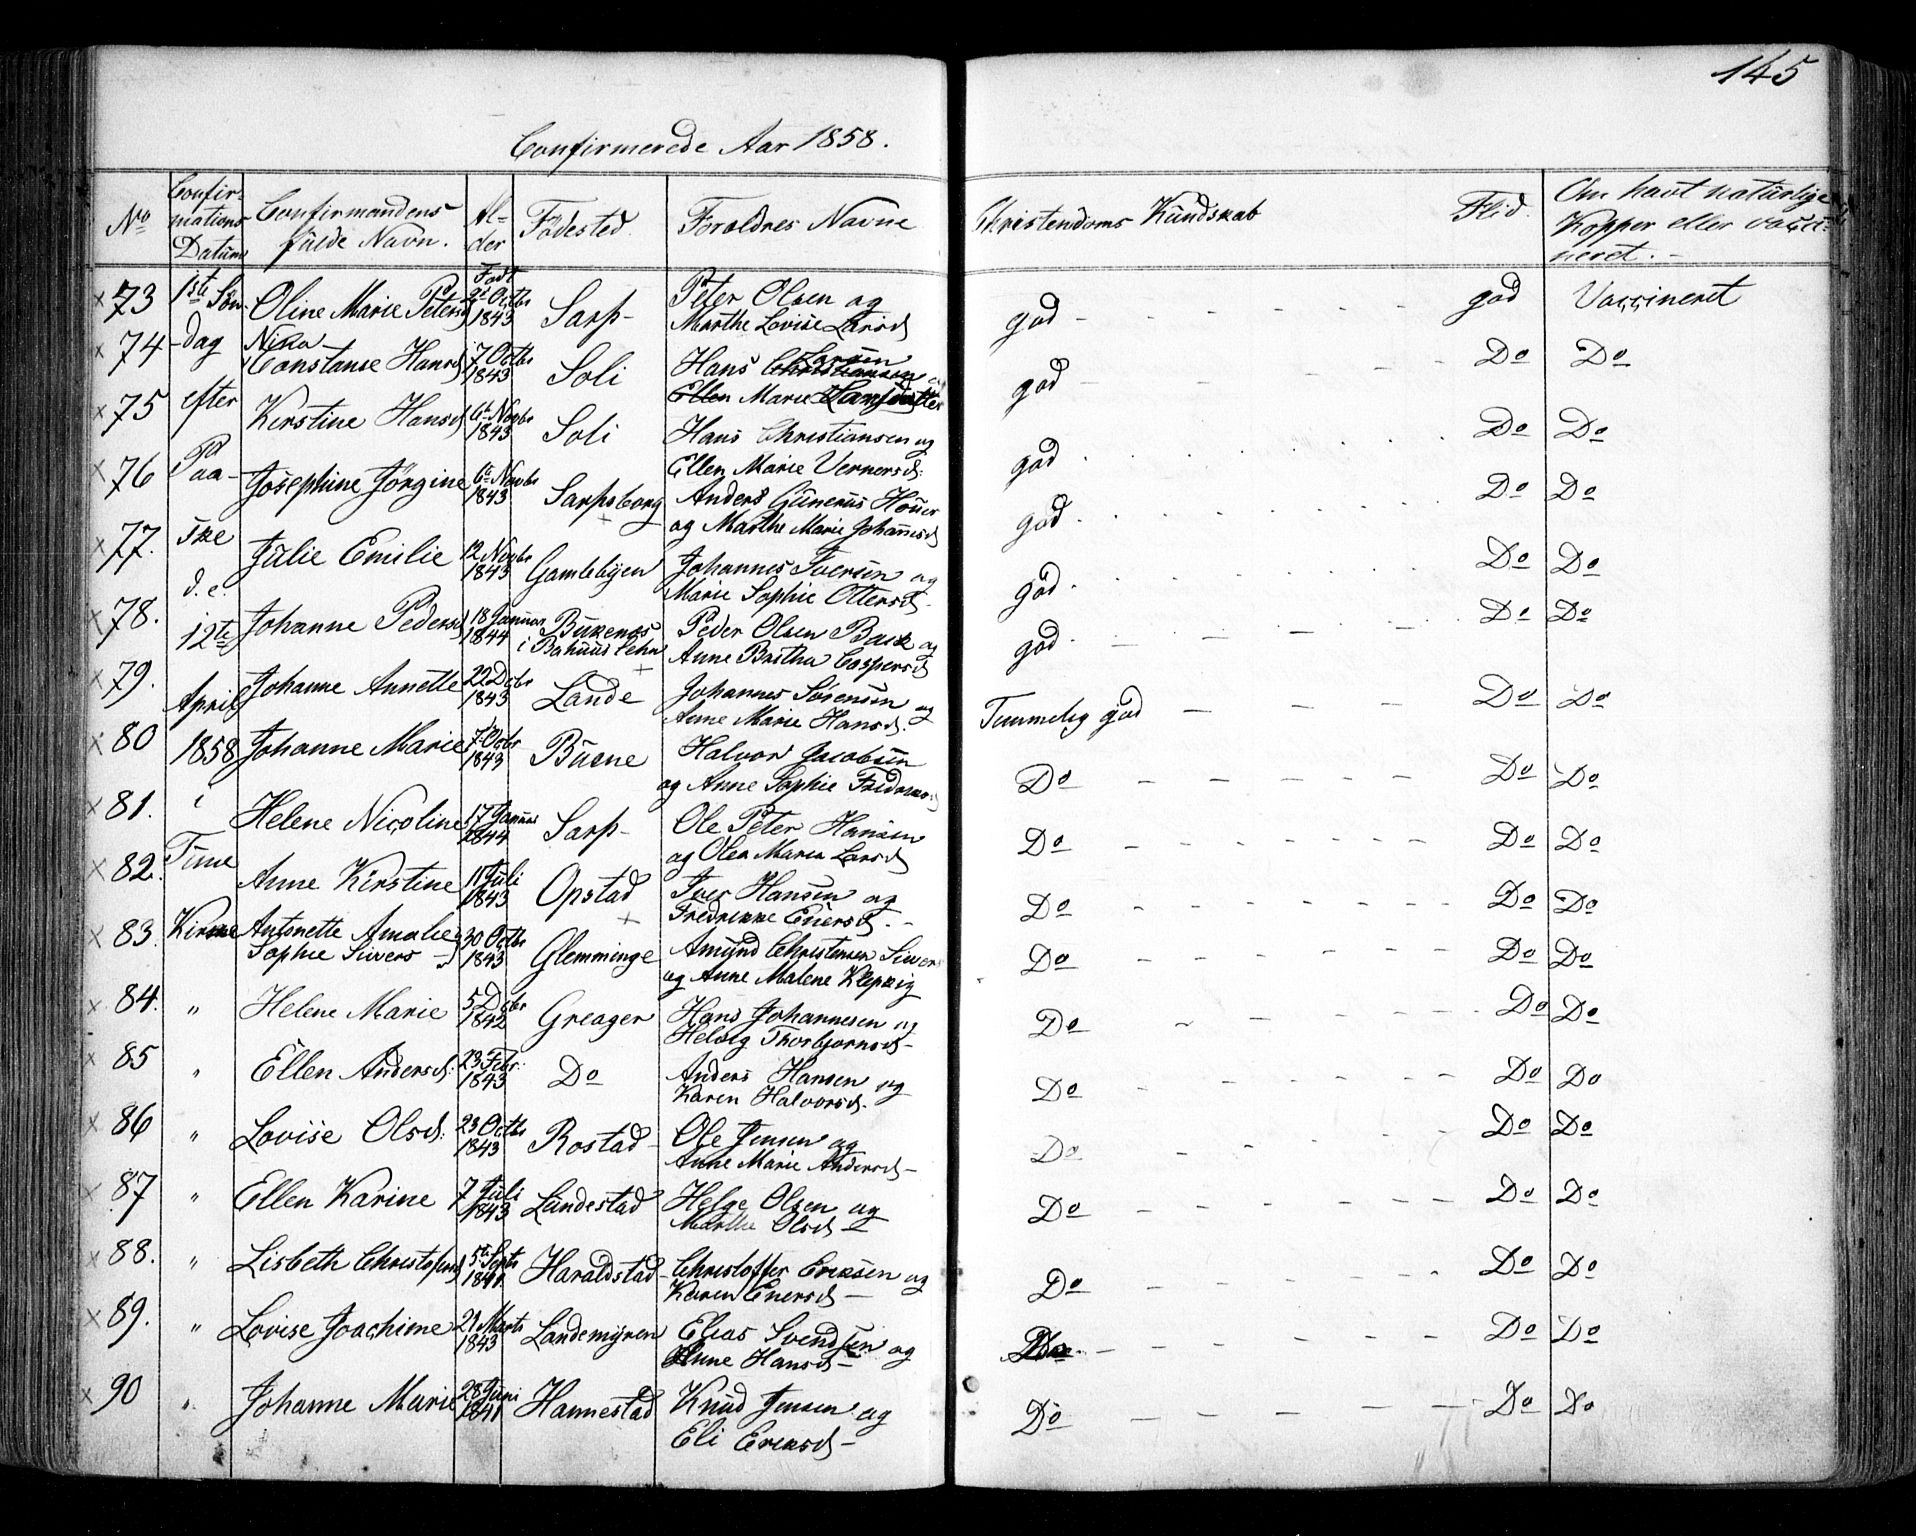 145
Confirmerede Aar 1858.
No Confir-mations Datum Confirmandens fulde Navn. Al-der Födested. Foraldres Navne Christendoms Kundskab Flid. Om havt naturlige Kopper eller vacci-neret.
Födt
x 73 1ste Sön- Oline Marie Petersd 2d Octbr 1843 Sarp- Peter Olsen og Marthe Lovise Larsd god god Vaccineret
x 74 dag Nika Constanse Hansd 7 Octbr 1843 Soli Hans Christiansen Larsen Ellen Marie god Do Do
x 75 efter Kirstine Hansd 6te Novbr 1843 Soli Hans Christiansen og Ellen Marie Vernersd: god Do Do
x 76 Paa- Josephine Jörgine 6te Novbr 1843 Sarpsborg Anders Gunerius og Marthe Marie Johannesd god Do Do
x 77. ske Julie Emilie 12 Novbr 1843 Gamlebyen Johannes Iversen og Marie Sophie Ottersd god Do Do
d. e.
x 78. 12te Johanne Pedersd 18 Januar 1844 i Bahuus Lehn Peder Olsen Bask og Anne Bartha Caspersd god Do Do
x 79. April Johanne Annette 22 Dcbr 1843 Lande Johannes Sörensen og Anne Marie Hansd. Temmelig god Do Do
x 80 1858 Johanne Marie 7 Octbr 1843 Busne Halvor Jacobsen og Anne Sophie Do Do Do
x 81. i Helene Nicoline 17 Januar 1844 Sarp- Ole Peter Hansen og Olea Maria Larsd Do Do Do
x 82. Tune Anne Kirstine 11 Juli 1843 Opstad Iver Hansen og Fredrikke Enersd. Do Do Do
x 83. Kirke Antonette Amalie Sophie Sivers 30 Octbr 1843 Glemminge Amund Christensen Siver og Anne Malene Klepzig Do Do Do
x 84. " Helene Marie 5 Dcbr 1842 Greager Hans Johannesen og Helvig Thorbjornsd- Do Do Do
x 85 " Ellen Andersd: 23 Febr: 1843 Do Anders Hansen og Karen Halvorsd. Do Do Do
x 86 " Lovise Olsd: 23 Octbr 1843 Rostad Ole Jensen og Anne Marie Andersd- Do Do Do
x 87 " Ellen Karine 7 Juli 1843 Lundestad Helge Olsen og Marthe Olsd- Do Do Do
x 88. " Lisbeth Christofersd 5te Septr 1841 Haraldstad Christoffer Eriksen og Karen Enersd- Do Do Do
x 89. " Lovise Joachime 21 Marts 1843 Landemyren Elias Svendsen og Anne Hansd- Do Do Do
x 90 " Johanne Marie 28 Juni 1841 Hannestad Knud Jensen og Eli Eriksd- Do Do Do